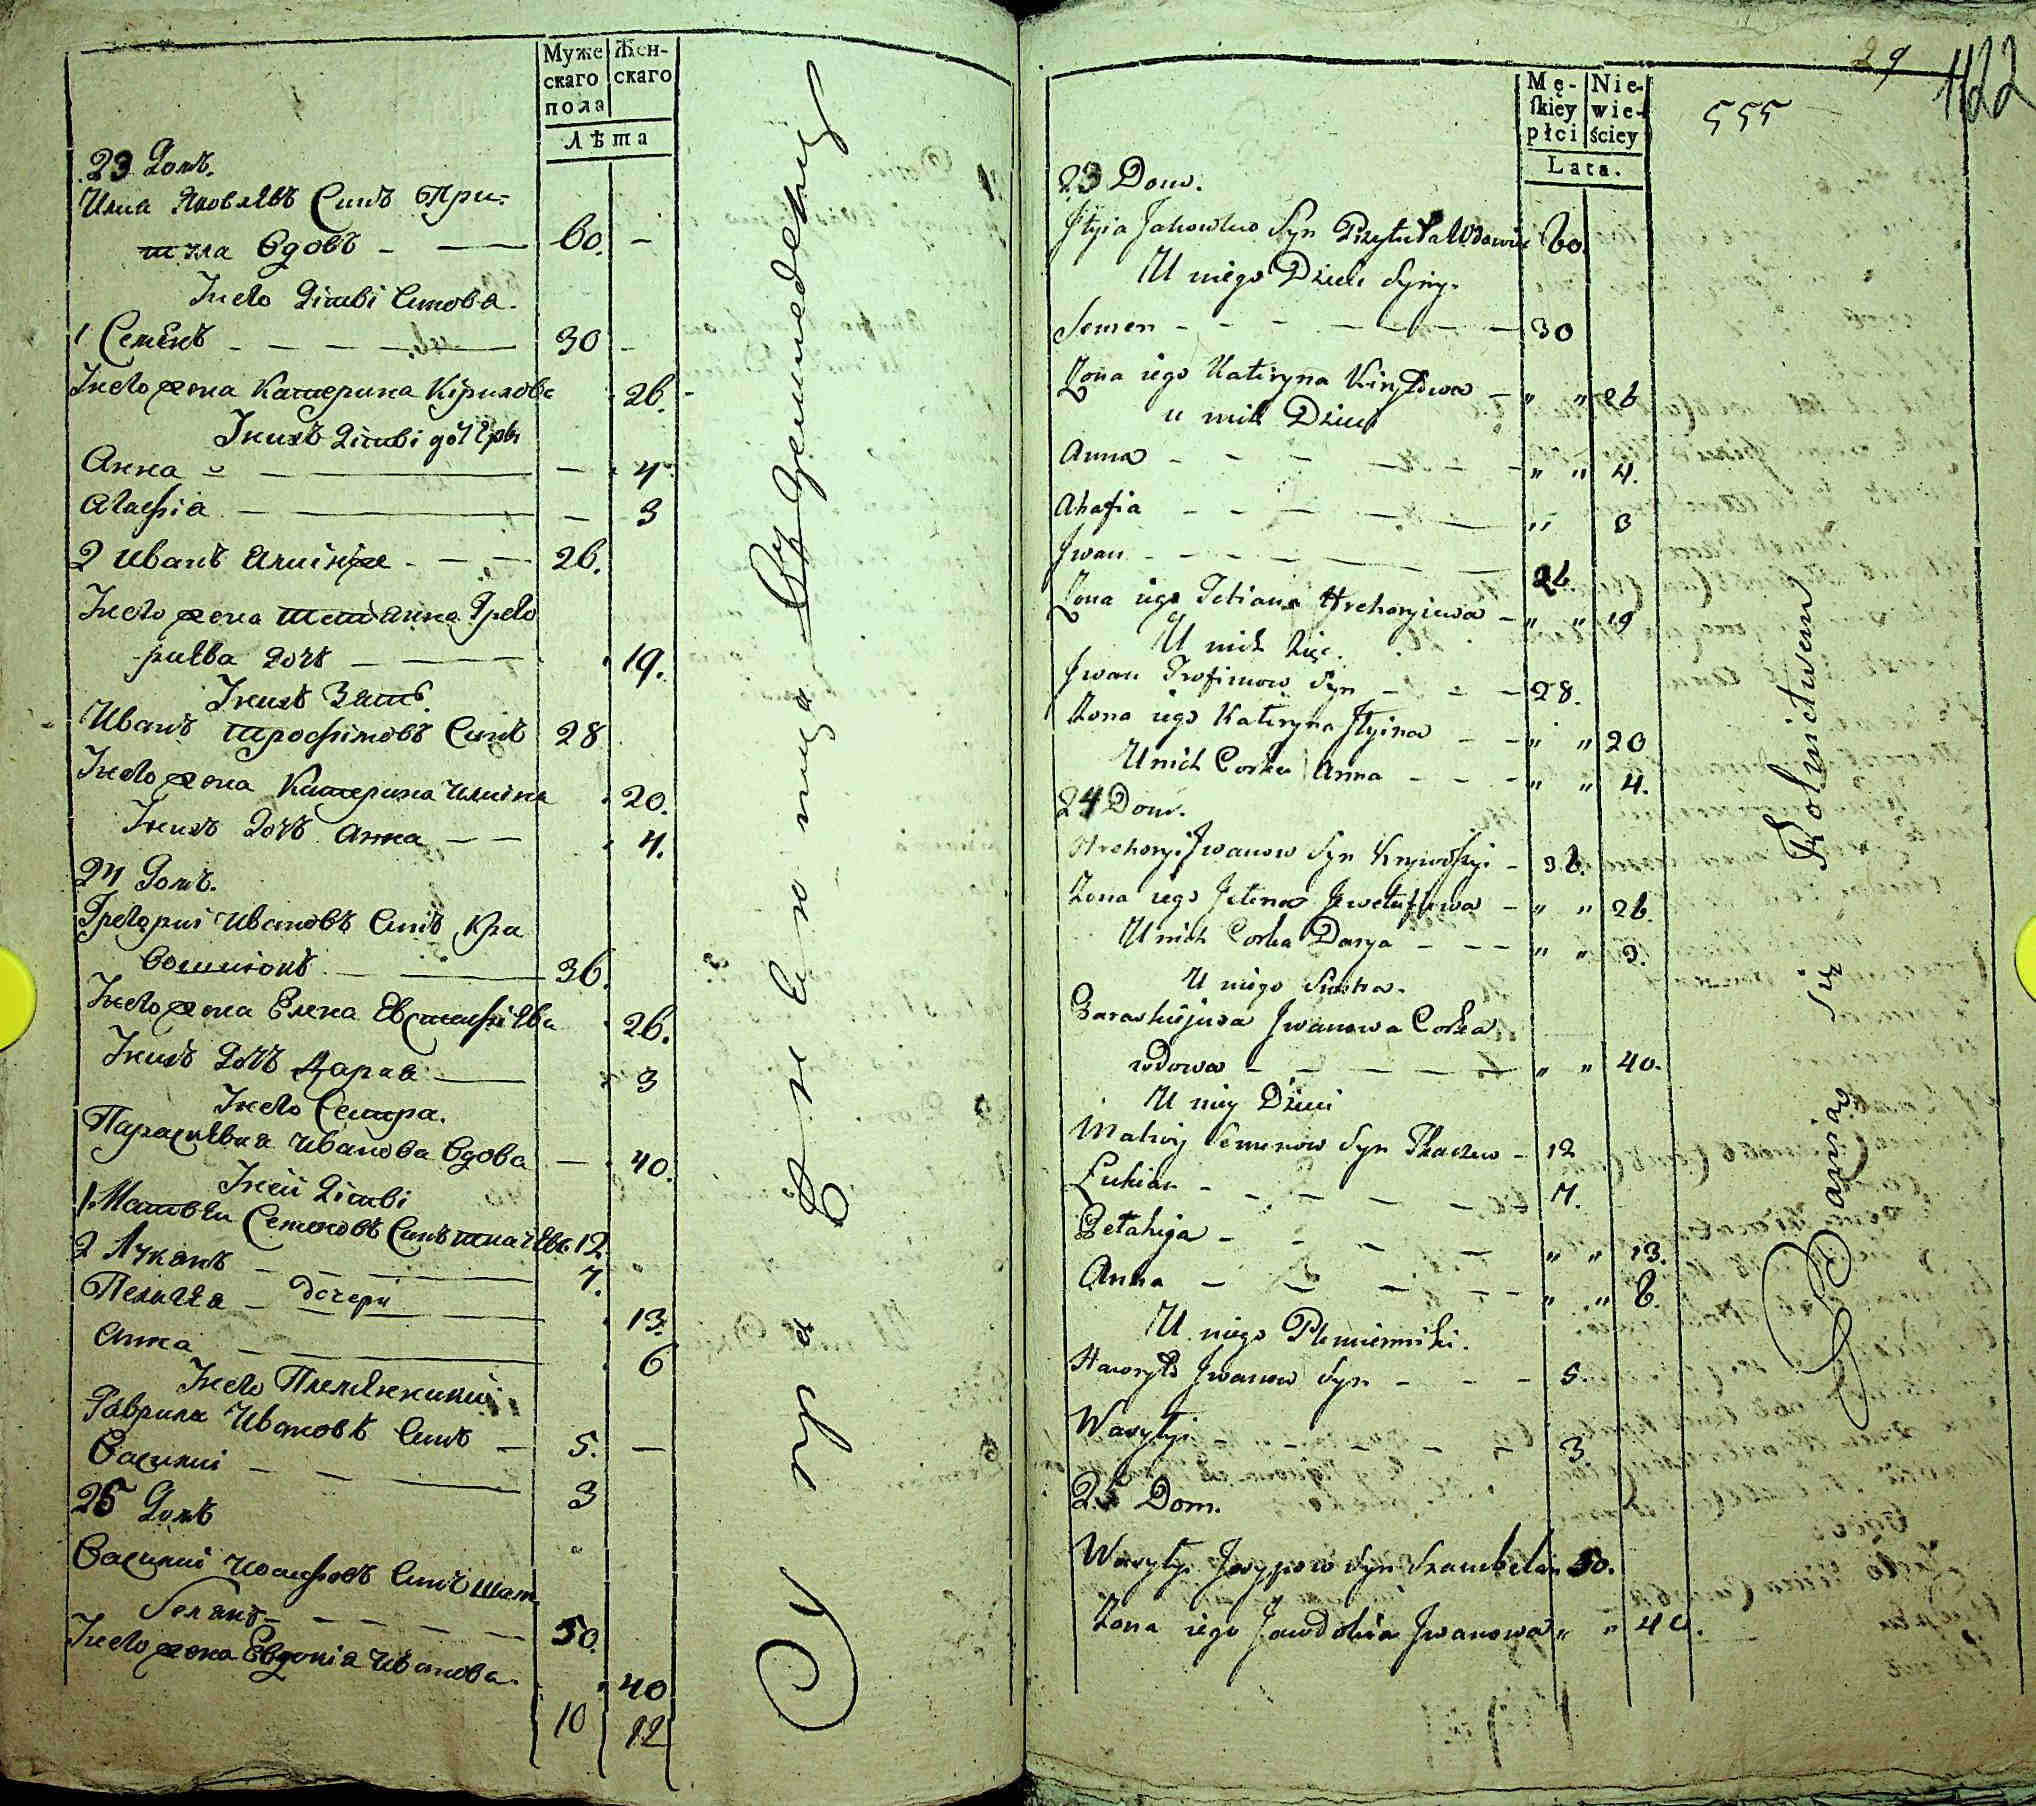 Муже
скаго
пола
Жен-
скаго
Лѣта
23 Домъ.
Илиа Яковлѣвъ Синъ При-
тула Вдовъ - — 60. -
Унего Дѣтві Синова.
1 Семѣнъ - — — — 30 -
Унего жена Катерина Кірилова 26. -
Унихъ Дѣтві дочѣры
Анна - — — 4.
Агафіа — — 3
2 Иванъ Илиінъ - — - 26.
Унего жена Татіанна Григо
риѣва дочъ — — 19.
Унихъ Зять.
Иванъ Трофімовъ Синъ 28
Унего жена Катерина Илиіна 20.
Унихъ Дочъ Анна — — 4.
24 Домъ.
Григорій Ивановъ Синъ Кра
вошиюкъ - — 36.
Унего жена Елена Евстафіѣва 26.
Унихъ Дочъ Дариа — 3
Унего Сестра.
Параскѣвия Иванова Вдова — 40.
Уней Дѣтві
1. Матвѣи Семеновъ Синъ Ткачѣвъ 12.
2 Лукянъ - — — 7.
Дочери
Пелагѣя - — — 13.
Анна - — — 6
Унего Племѣнники
Гаврила Ивановъ Синъ — 5. —
Василий — — — 3
25 Домъ
Василий Иосифовъ Синъ Шам
белянъ - — — 50.
Унего жена Евдокіа Иванова. 40
10 12
Упражняется въ земледелии
29 1122
555
Mę-
ſkiey
płci
Nie-
wie-
ściey
Lata.
23 Dom.
Jłyia Jakowlew Syn Przytuła Wdowiec 60.
U niego Dzieci Syny.
Semen - - - - - - 30
Żona iego Kateryna Kiryłowa - „ „ 26
u nich Dzieci
Anna - - - - - „ „ 4.
Ahafia - - - - - „ 3
Jwan - - - - - - 26.
Żona iego Tetiana Hrehoryiewa - „ „ 19
U nich Zięć.
Jwan Trofimow Syn - - - 28.
Żona iego Kateryna Jłyina - - „ „ 20
U nich Corka Anna - - - „ „ 4.
24 Dom.
Hrehoryi Jwanow Syn - 36.
Żona iego Jelena - „ „ 26.
U nich Corka Darya - - - „ „ 3.
U niego Siostra.
Paraskiewja Jwanowa Corka
wdowa - - - - - „ „ 40.
U niey Dzieci
Matwiy Semenow Syn Tkaczew - 12
Łukian - - - - - - 7.
Pełahija - - - - „ „ 13.
Anna - - - - - - „ „ 6.
U niego Plemienniki.
Hawryło Jwanow Syn - - - 5.
Wasyłyi - - - - - - 3.
25 Dom.
Wasyłyi Josypow Syn Szambelan 50.
Żona iego Jawdokia Jwanowa „ „ 40.
Bawią się Rolnictwem